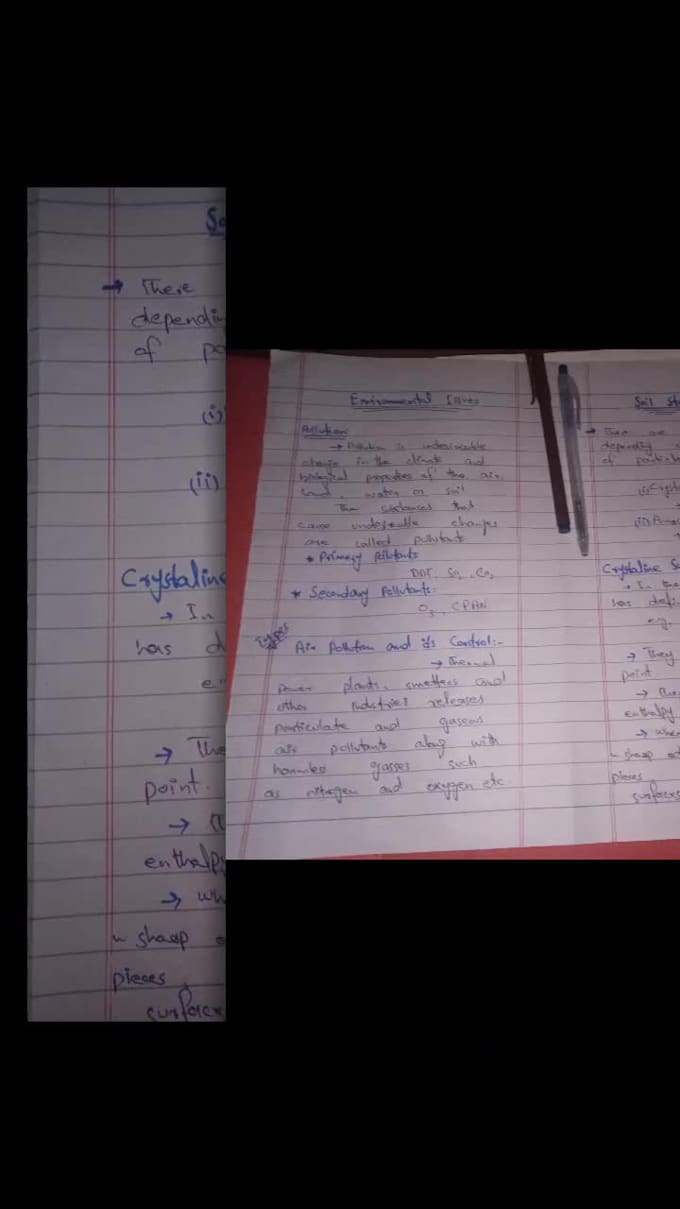 → There
depending
of
(i)
(ii)
Crystaline
→ In
has
→ The
point.
→
enthalpy
→ wh
sharp
pieces
surfaces
Environmental Issues
Pollution
→ Pollution is undesirable
change in the climate and
biological properties of the air
land, water or soil
The substances that
cause undesirable changes
are called pullutants
* Primary Pollutants
DDT, So2, Co2
* Secondary Pollutants:
O3, CPAN
Types
Air Pollution and its Control:-
→ Thermal
power plants, smelters and
other industries releases
particulate and gaseous
air pollutants along with
harmless gasses such
as nitrogen and oxygen etc
Soil St
→ There are
depending
of particle
(i) Cryst
(ii)
Crystaline S
→ In the
has defi
e.g.
→ They
point
→ The
enthalpy
→ when
sharp
pieces
surfaces